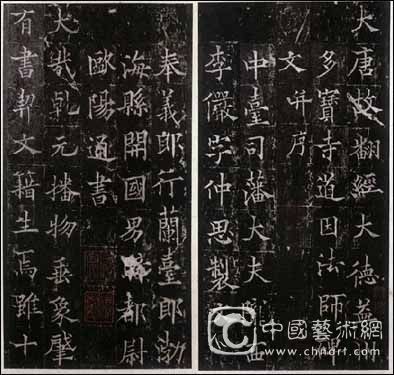 大唐故翻經大德益
多寶寺道因法師碑
文并序
中臺司藩大夫
李儼字仲思製
奉義郎行蘭臺郎渤
海縣開國男騎都尉
歐陽通書
大哉乾元播物垂象肇
有書契文籍生焉雖十
中國藝術網
www.chnart.com